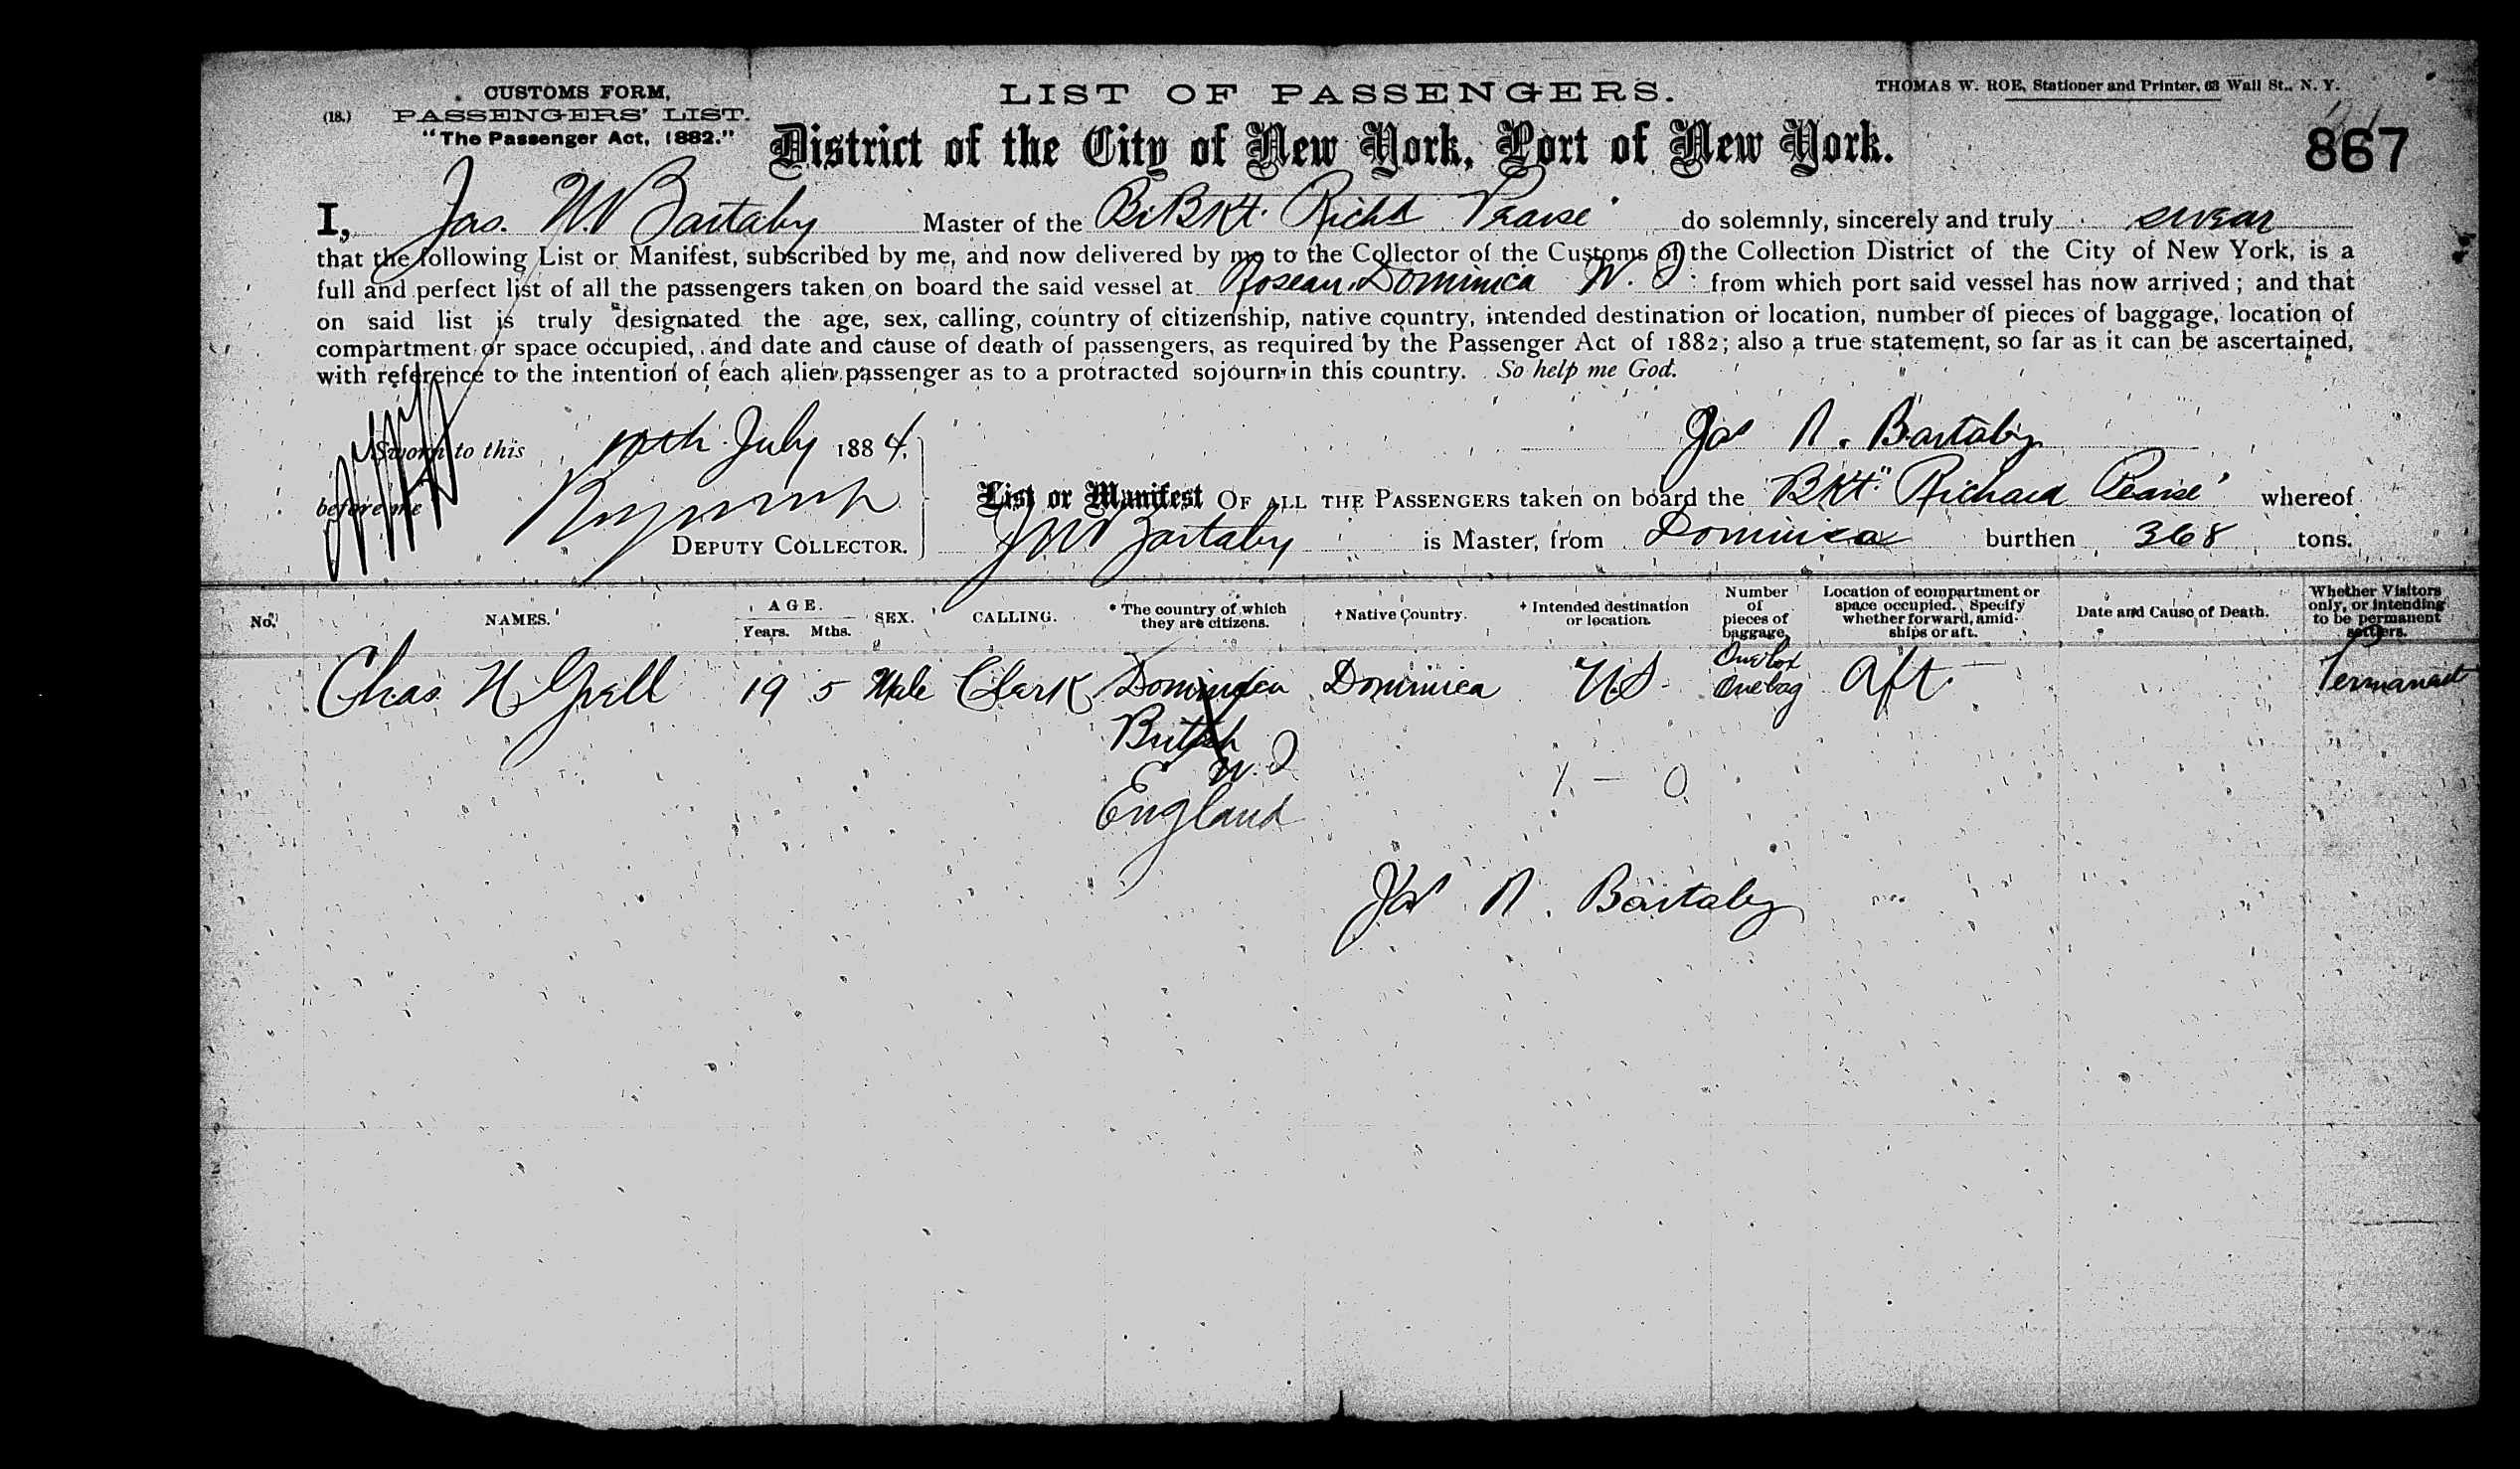 CUSTOMS FORM,
(18.) PASSENGERS' LIST.
"The Passenger Act, 1882."
LIST OF PASSENGERS.
THOMAS W. ROE, Stationer and Printer, 63 Wall St., N. Y.
District of the City of New York, Port of New York.
867
I, Jas. W. Bartaby Master of the Br Bkt. Richd Pearse do solemnly, sincerely and truly swear
that the following List or Manifest, subscribed by me, and now delivered by me to the Collector of the Customs of the Collection District of the City of New York, is a
full and perfect list of all the passengers taken on board the said vessel at Roseau, Dominica W. I from which port said vessel has now arrived; and that
on said list is truly designated the age, sex, calling, country of citizenship, native country, intended destination or location, number of pieces of baggage, location of
compartment or space occupied, and date and cause of death of passengers, as required by the Passenger Act of 1882; also a true statement, so far as it can be ascertained,
with reference to the intention of each alien passenger as to a protracted sojourn in this country. So help me God.
Jas N. Bartaby
Sworn to this July 1884.
before me
DEPUTY COLLECTOR.
List or Manifest OF ALL THE PASSENGERS taken on board the Bkt "Richard Pearse" whereof
J W Bartaby is Master, from Dominica burthen 368 tons.
No. NAMES. AGE. Years. Mths. SEX. CALLING. * The country of which they are citizens. † Native Country. † Intended destination or location. Number of pieces of baggage. Location of compartment or space occupied. Specify whether forward, amidships or aft. Date and Cause of Death. Whether Visitors only, or intending to be permanent settlers.
Chas. H Grell 19 5 Male Clark Dominica Dominica U.S. One box One bag Aft. Permanent
British
W. I
England
1 - 0
Jas N. Bartaby